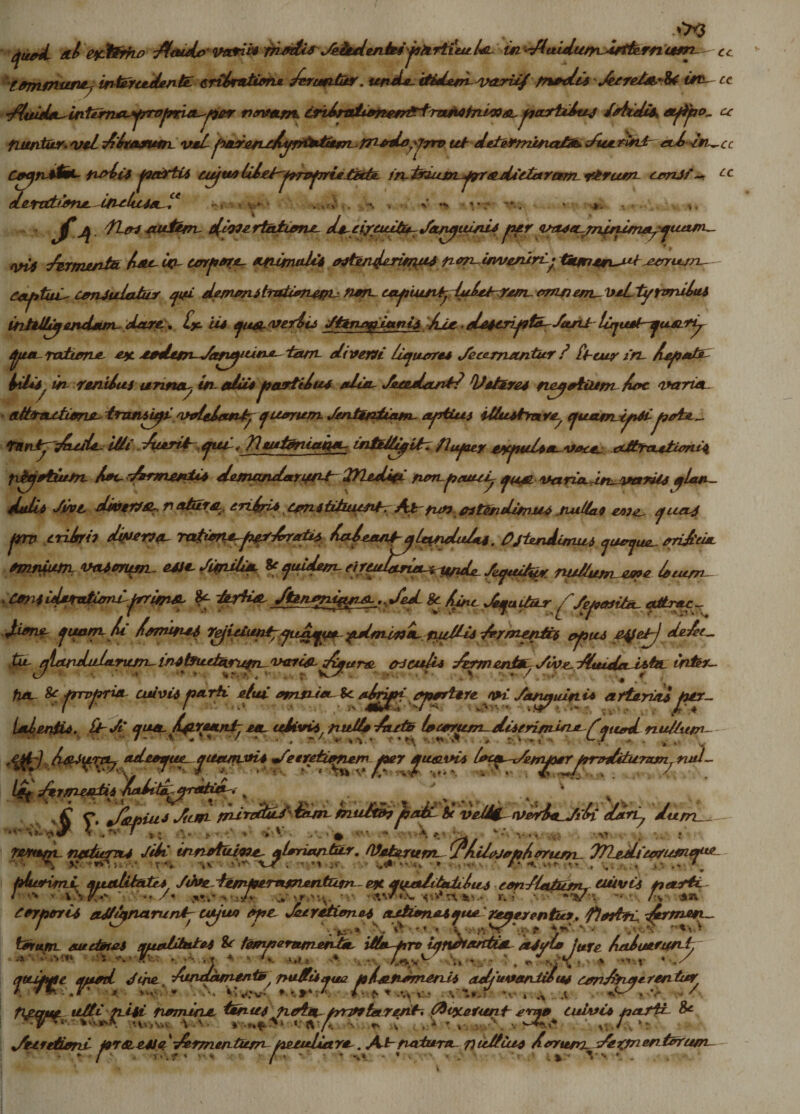 73
quod ab externo fluido variis modis secedentes particulæ in fluidum internum cc
commune, intercedente cribratione feruntur. unde itidem variis modis secreta & in cc
fluida interna propria per novam cribrationem transmissa partibus solidis, appo- cc
nuntur vel fibrarum vel modo, pro ut determinatæ fuerint ab in- cc
cognita nobis partis cujus libet proprietate in trium prædictarum rerum consi- cc
deratione inclusa."
§ 4. Nos autem dissertatione de circuitu sanguinis per vasa minima, quam-
vis fermenta hæc in corpore animalis ostenderimus non inveniri; tamen ut eorum
captui consulatur qui demonstrationem non capiunt, lubet rem omnem vel tyronibus
intelligendam dare. Ex iis quæ verbis Stenonianis hic descripta sunt liquet quæri,
qua ratione ex eodem sanguine tam diversi liquores secernantur? & cur in hepate
bilis, in renibus urina, in aliis partibus alia secedant? Veteres negotium hoc varia
attractione transigi volebant, quorum sententiam aptius illustrare, quam ipsi pote-
rant, facile illi fuerit, qui Neutoniana intelligit. Nuper expulsa voce attractionis
negotium hoc fermentis demandarunt Medici non pauci, quæ varia in variis glan-
dulis sive diversæ naturæ, cribris constituunt. At nos ostendimus nullas esse, quas
pro cribris diversa ratione perforatis habeant glandulas. Ostendimus quoque orificia
omnium vasorum esse similia & quidem circularia: unde sequitur nullum esse locum
considerationi primæ & tertiæ Stenonianæ, sed & hinc sequitur (seposita attrac-
tione quam hi homines rejiciunt, quaque admissa nullis fermentis opus esset) defec-
tu glandularum instructarum varia figura osculis fermenta, sive fluida ista inter-
na & propria cuivis parti elui omnia & abripi oportere vi sanguinis arterias per-
labentis. Et si qua hæreant, ea cuivis, nullo facto locorum discrimine (quod nullum
est) hæsura, adeoque quamvis secretionem per quævis loca semper proditura, nul-
lis fermentis habita gratia.
§ 5. Sæpius sum miratus tam multos pati & velle verba sibi dari, dum
rerum naturas sibi innotuisse gloriantur. Veterum Philosophorum Medicorumque
plurimi qualitates, sive temperamentum ex qualitatibus conflatum, cuivis parti
corporis assignarunt cujus ope secretiones actionesque regerentur. Nostri fermen-
torum auctores qualitates & temperamenta illa pro ignorantiæ asylo jure habuerunt,
quippe quod sine fundamento, nullisque phænomenis adjuvantibus confingerentur,
neque ulli nisi nomine tenus nota prostarent. Dixerunt ergo cuivis parti &
secretioni præesse fermentum peculiare. At natura nullius horum fermentorum